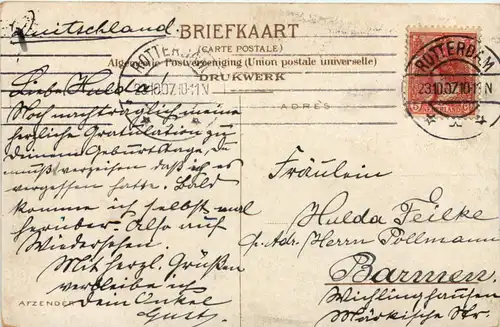 Deutschland.
BRIEFKAART
(CARTE POSTALE)
Algemeene Postvereeniging (Union postale universelle)
DRUKWERK
ADRES
ROTTERDAM
23.10.07.10-11N
ROTTERDAM
23.10.07.10-11N
Liebe Hulda!
Noch nachträglich meine
herzliche Gratulation zu
deinem Geburtstage, du
mußt verzeihen daß ich es
vergessen hatte. Bald
komme ich selbst mal
herüber. Also auf
Wiedersehen.
Mit herzl. Grüßen
verbleibe ich
Dein Onkel
Gust.
AFZENDER
Fräulein
Hulda Teilke
p. Adr. Herrn Pollmann
Barmen.
Wichlinghausen
Märkische Str.